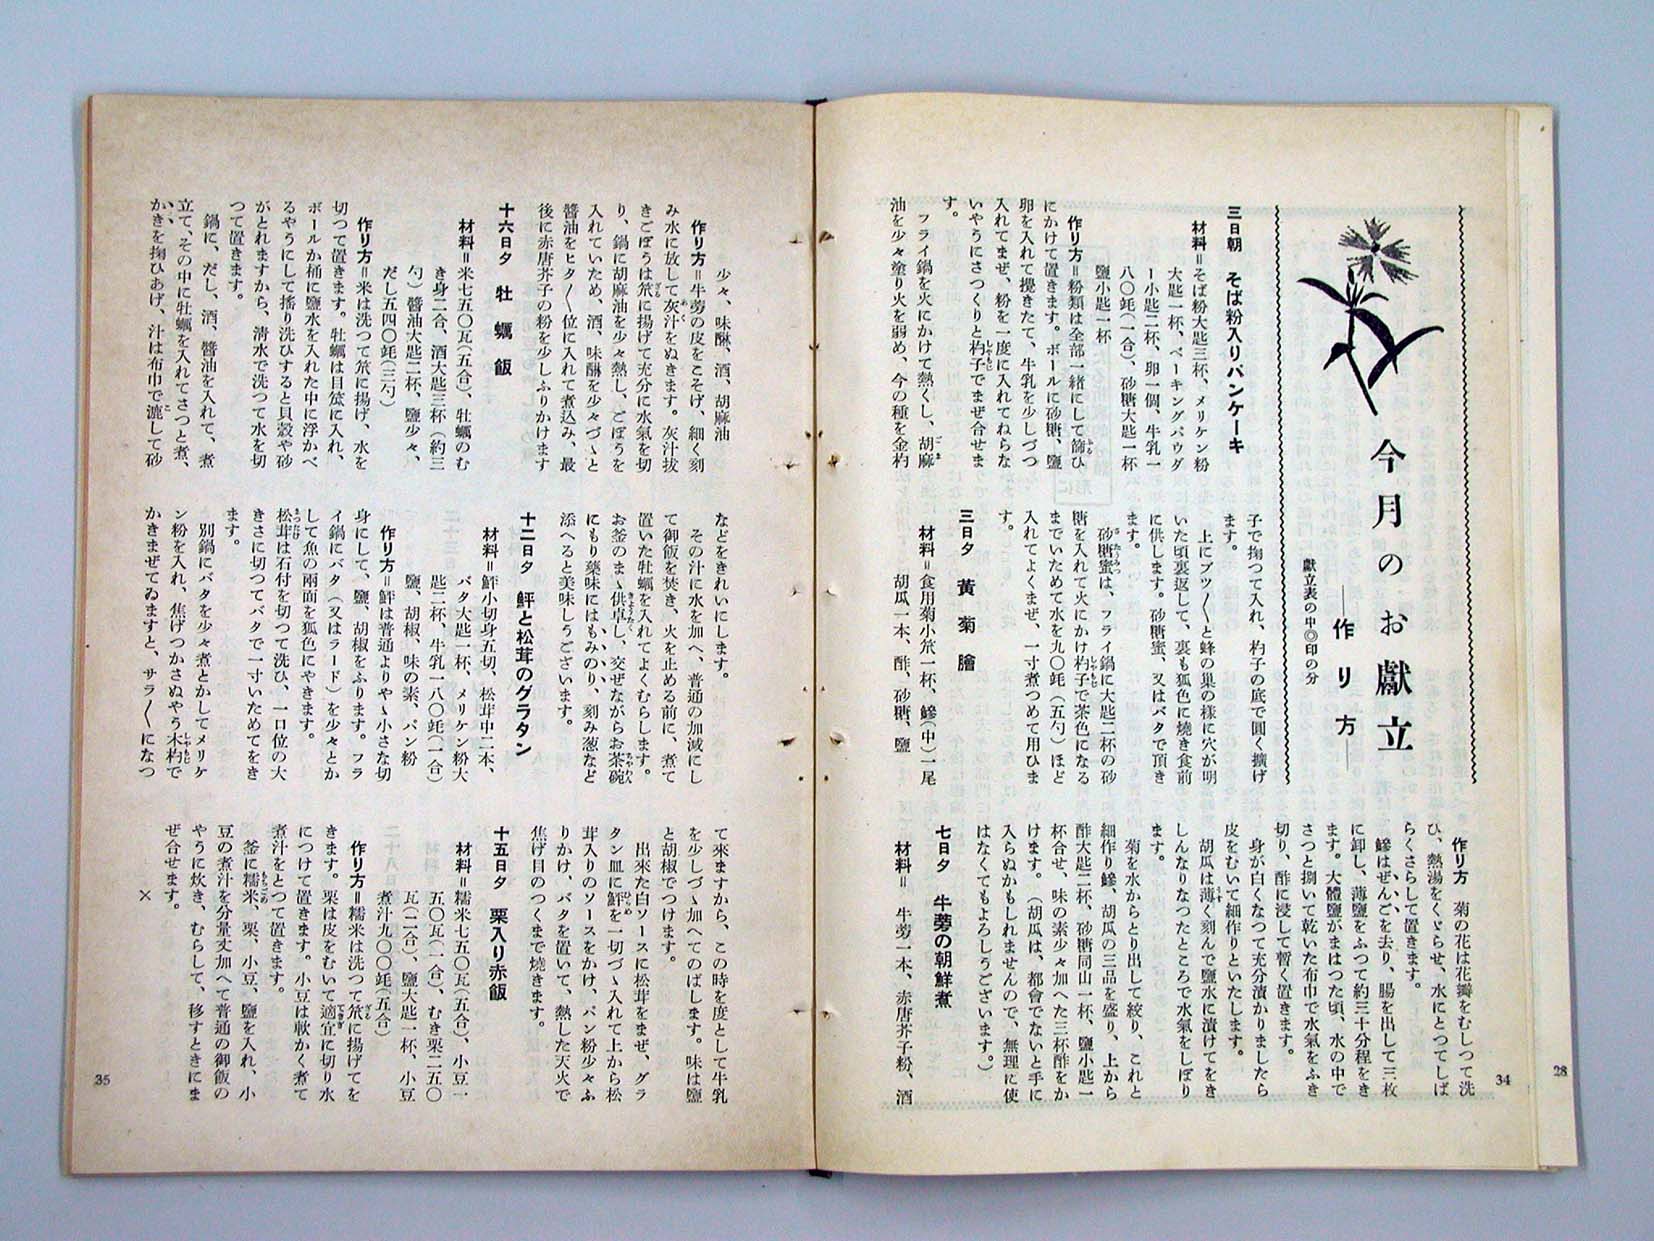 今月のお獻立
―作り方―
獻立表の中◎印の分
三日朝　そば粉入りパンケーキ
材料＝そば粉大匙三杯、メリケン粉
大匙一杯、ベーキングパウダ
ー小匙二杯、卵一個、牛乳一
八〇竓（一合）、砂糖大匙一杯
鹽小匙一杯
作り方＝粉類は全部一緒にして篩ひ
にかけて置きます。ボールに砂糖、鹽
卵を入れて攪きたて、牛乳を少しづつ
入れてまぜ、粉を一度に入れてねらな
いやうにさつくりと杓子でまぜ合せま
す。
フライ鍋を火にかけて熱くし、胡麻
油を少々塗り火を弱め、今の種を金杓
子で掬つて入れ、杓子の底で圓く擴げ
ます。
上にブツ〳〵と蜂の巣の樣に穴が明
いた頃裏返して、裏も狐色に燒き食前
に供します。砂糖蜜、又はバタで頂き
ます。
砂糖蜜は、フライ鍋に大匙二杯の砂
糖を入れて火にかけ杓子で茶色になる
までいためて水を九〇竓（五勺）ほど
入れてよくまぜ、一寸煮つめて用ひま
す。
三日夕　黃菊膾
材料＝食用菊小笊一杯、鰺（中）一尾
胡瓜一本、酢、砂糖、鹽
作り方　菊の花は花瓣をむしつて洗
ひ、熱湯をくゞらせ、水にとつてしば
らくさらして置きます。
鰺はぜんごを去り、腸を出して三枚
に卸し、薄鹽をふつて約三十分程をき
ます。大體鹽がまはつた頃、水の中で
さつと捌いて乾いた布巾で水氣をふき
切り、酢に浸して暫く置きます。
身が白くなつて充分漬かりましたら
皮をむいて細作りといたします。
胡瓜は薄く刻んで鹽水に漬けてをき
しんなりなつたところで水氣をしぼり
ます。
菊を水からとり出して絞り、これと
細作り鰺、胡瓜の三品を盛り、上から
酢大匙二杯、砂糖同山一杯、鹽小匙一
杯合せ、味の素少々加へた三杯酢をか
けます。（胡瓜は、都會でないと手に
入らぬかもしれませんので、無理に使
はなくてもよろしうございます。）
七日夕　牛蒡の朝鮮煮
材料＝　牛蒡一本、赤唐芥子粉、酒
34
28
少々、味醂、酒、胡麻油
作り方＝牛蒡の皮をこそげ、細く刻
み水に放して灰汁をぬきます。灰汁拔
きごぼうは笊に揚げて充分に水氣を切
り、鍋に胡麻油を少々熱し、ごぼうを
入れていため、酒、味醂を少々づゝと
醬油をヒタ〳〵位に入れて煮込み、最
後に赤唐芥子の粉を少しふりかけます
十六日夕　牡蠣飯
材料＝米七五〇瓦（五合）、牡蠣のむ
き身二合、酒大匙三杯（約三
勺）醬油大匙二杯、鹽少々、
だし五四〇竓（三勺）
作り方＝米は洗つて笊に揚げ、水を
切つて置きます。牡蠣は目笊に入れ、
ボールか桶に鹽水を入れた中に浮かべ
るやうにして搖り洗ひすると貝殼や砂
がとれますから、淸水で洗つて水を切
つて置きます。
鍋に、だし、酒、醬油を入れて、煮
立て、その中に牡蠣を入れてさつと煮、
かきを掬ひあげ、汁は布巾で漉して砂
などをきれいにします。
その汁に水を加へ、普通の加減にし
て御飯を焚き、火を止める前に、煮て
置いた牡蠣を入れてよくむらします。
お釜のまゝ供卓し、交ぜながらお茶碗
にもり藥味にはもみのり、刻み葱など
添へると美味しうございます。
十二日夕　鮃と松茸のグラタン
材料＝鮃小切身五切、松茸中二本、
バタ大匙一杯、メリケン粉大
匙二杯、牛乳一八〇竓（一合）
鹽、胡椒、味の素、パン粉
作り方＝鮃は普通よりやゝ小さな切
身にして、鹽、胡椒をふります。フラ
イ鍋にバタ（又はラード）を少々とか
して魚の兩面を狐色にやきます。
松茸は石付を切つて洗ひ、一口位の大
きさに切つてバタで一寸いためてをき
ます。
別鍋にバタを少々煮とかしてメリケ
ン粉を入れ、焦げつかさぬやう木杓で
かきまぜてゐますと、サラ〳〵になつ
て來ますから、この時を度として牛乳
を少しづゝ加へてのばします。味は鹽
と胡椒でつけます。
出來た白ソースに松茸をまぜ、グラ
タン皿に鮃を一切づゝ入れて上から松
茸入りのソースをかけ、パン粉少々ふ
りかけ、バタを置いて、熱した天火で
焦げ目のつくまで燒きます。
十五日夕　栗入り赤飯
材料＝糯米七五〇瓦（五合）、小豆一
五〇瓦（一合）、むき栗二五〇
瓦（二合）、鹽大匙一杯、小豆
煮汁九〇〇竓（五合）
作り方＝糯米は洗つて笊に揚げてを
きます。栗は皮をむいて適宜に切り水
につけて置きます。小豆は軟かく煮て
煮汁をとつて置きます。
釜に糯米、栗、小豆、鹽を入れ、小
豆の煮汁を分量丈加へて普通の御飯の
やうに炊き、むらして、移すときにま
ぜ合せます。
×
35